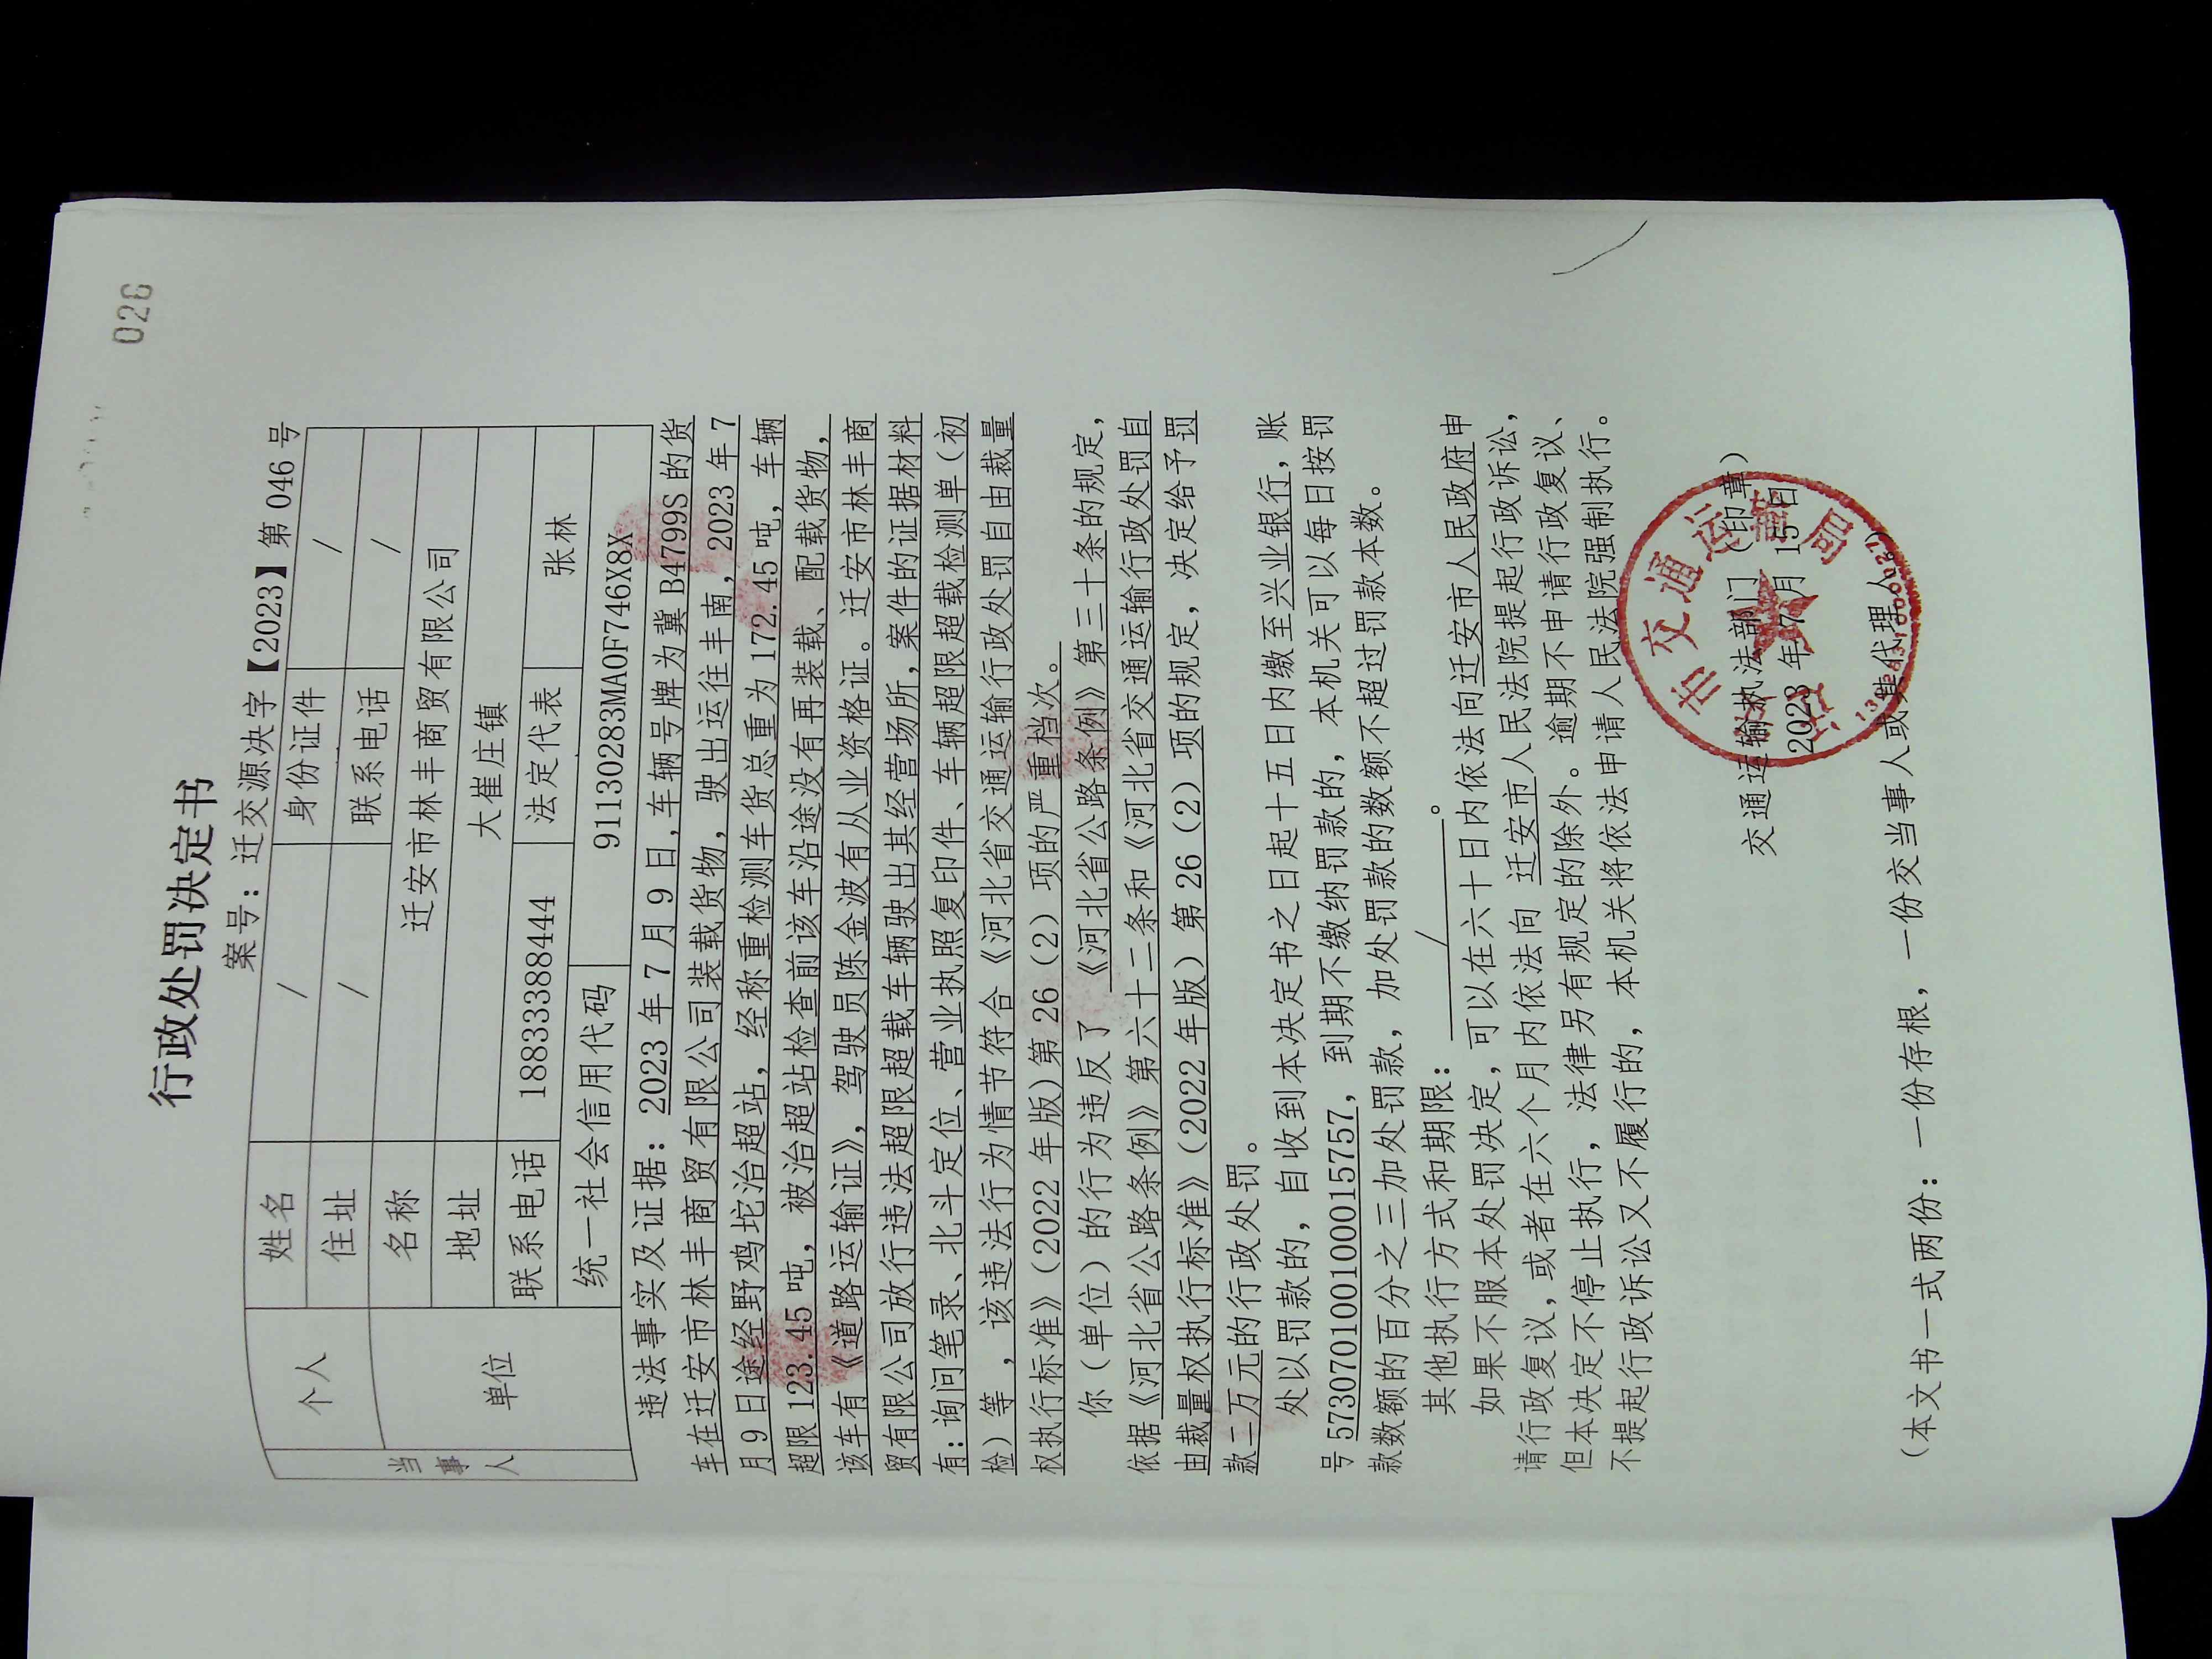 026
行政处罚决定书
案号：迁交源决字【2023】第 046 号
当事人 个人 姓名 / 身份证件 /
住址 / 联系电话 /
单位 名称 迁安市林丰商贸有限公司
地址 大崔庄镇
联系电话 18833388444 法定代表 张林
统一社会信用代码 91130283MA0F746X8X
违法事实及证据：2023 年 7 月 9 日，车辆号牌为冀 B4799S 的货
车在迁安市林丰商贸有限公司装载货物，驶出运往丰南，2023 年 7
月 9 日途经野鸡坨治超站，经称重检测车货总重为 172.45 吨，车辆
超限 123.45 吨，被治超站检查前该车沿途没有再装载、配载货物，
该车有《道路运输证》，驾驶员陈金波有从业资格证。迁安市林丰商
贸有限公司放行违法超限超载车辆驶出其经营场所，案件的证据材料
有：询问笔录、北斗定位、营业执照复印件、车辆超限超载检测单（初
检）等，该违法行为情节符合《河北省交通运输行政处罚自由裁量
权执行标准》（2022 年版）第 26（2）项的严重档次。
你（单位）的行为违反了《河北省公路条例》第三十条的规定，
依据《河北省公路条例》第六十二条和《河北省交通运输行政处罚自
由裁量权执行标准》（2022 年版）第 26（2）项的规定，决定给予罚
款二万元的行政处罚。
处以罚款的，自收到本决定书之日起十五日内缴至兴业银行，账
号 573070100100015757，到期不缴纳罚款的，本机关可以每日按罚
款数额的百分之三加处罚款，加处罚款的数额不超过罚款本数。
其他执行方式和期限： / 。
如果不服本处罚决定，可以在六十日内依法向迁安市人民政府申
请行政复议，或者在六个月内依法向 迁安市人民法院提起行政诉讼，
但本决定不停止执行，法律另有规定的除外。逾期不申请行政复议、
不提起行政诉讼又不履行的，本机关将依法申请人民法院强制执行。
交通运输执法部门（印章）
2023 年 7 月 15 日
市交通运输局
（本文书一式两份：一份存根，一份交当事人或其代理人。）